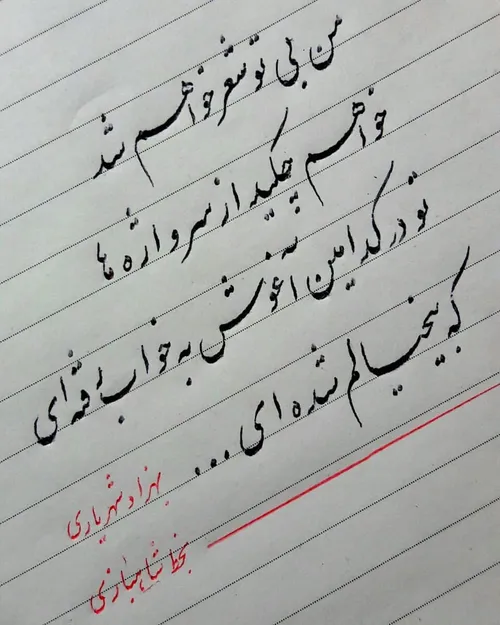 من بی تو شعر خواهم شد
خواهم چکید از سر واژه ها
تو در کدامین آغوش به خواب رفته ای
که بیخیالم شده ای ...
بهزاد شهریاری
بخط شاهبازی